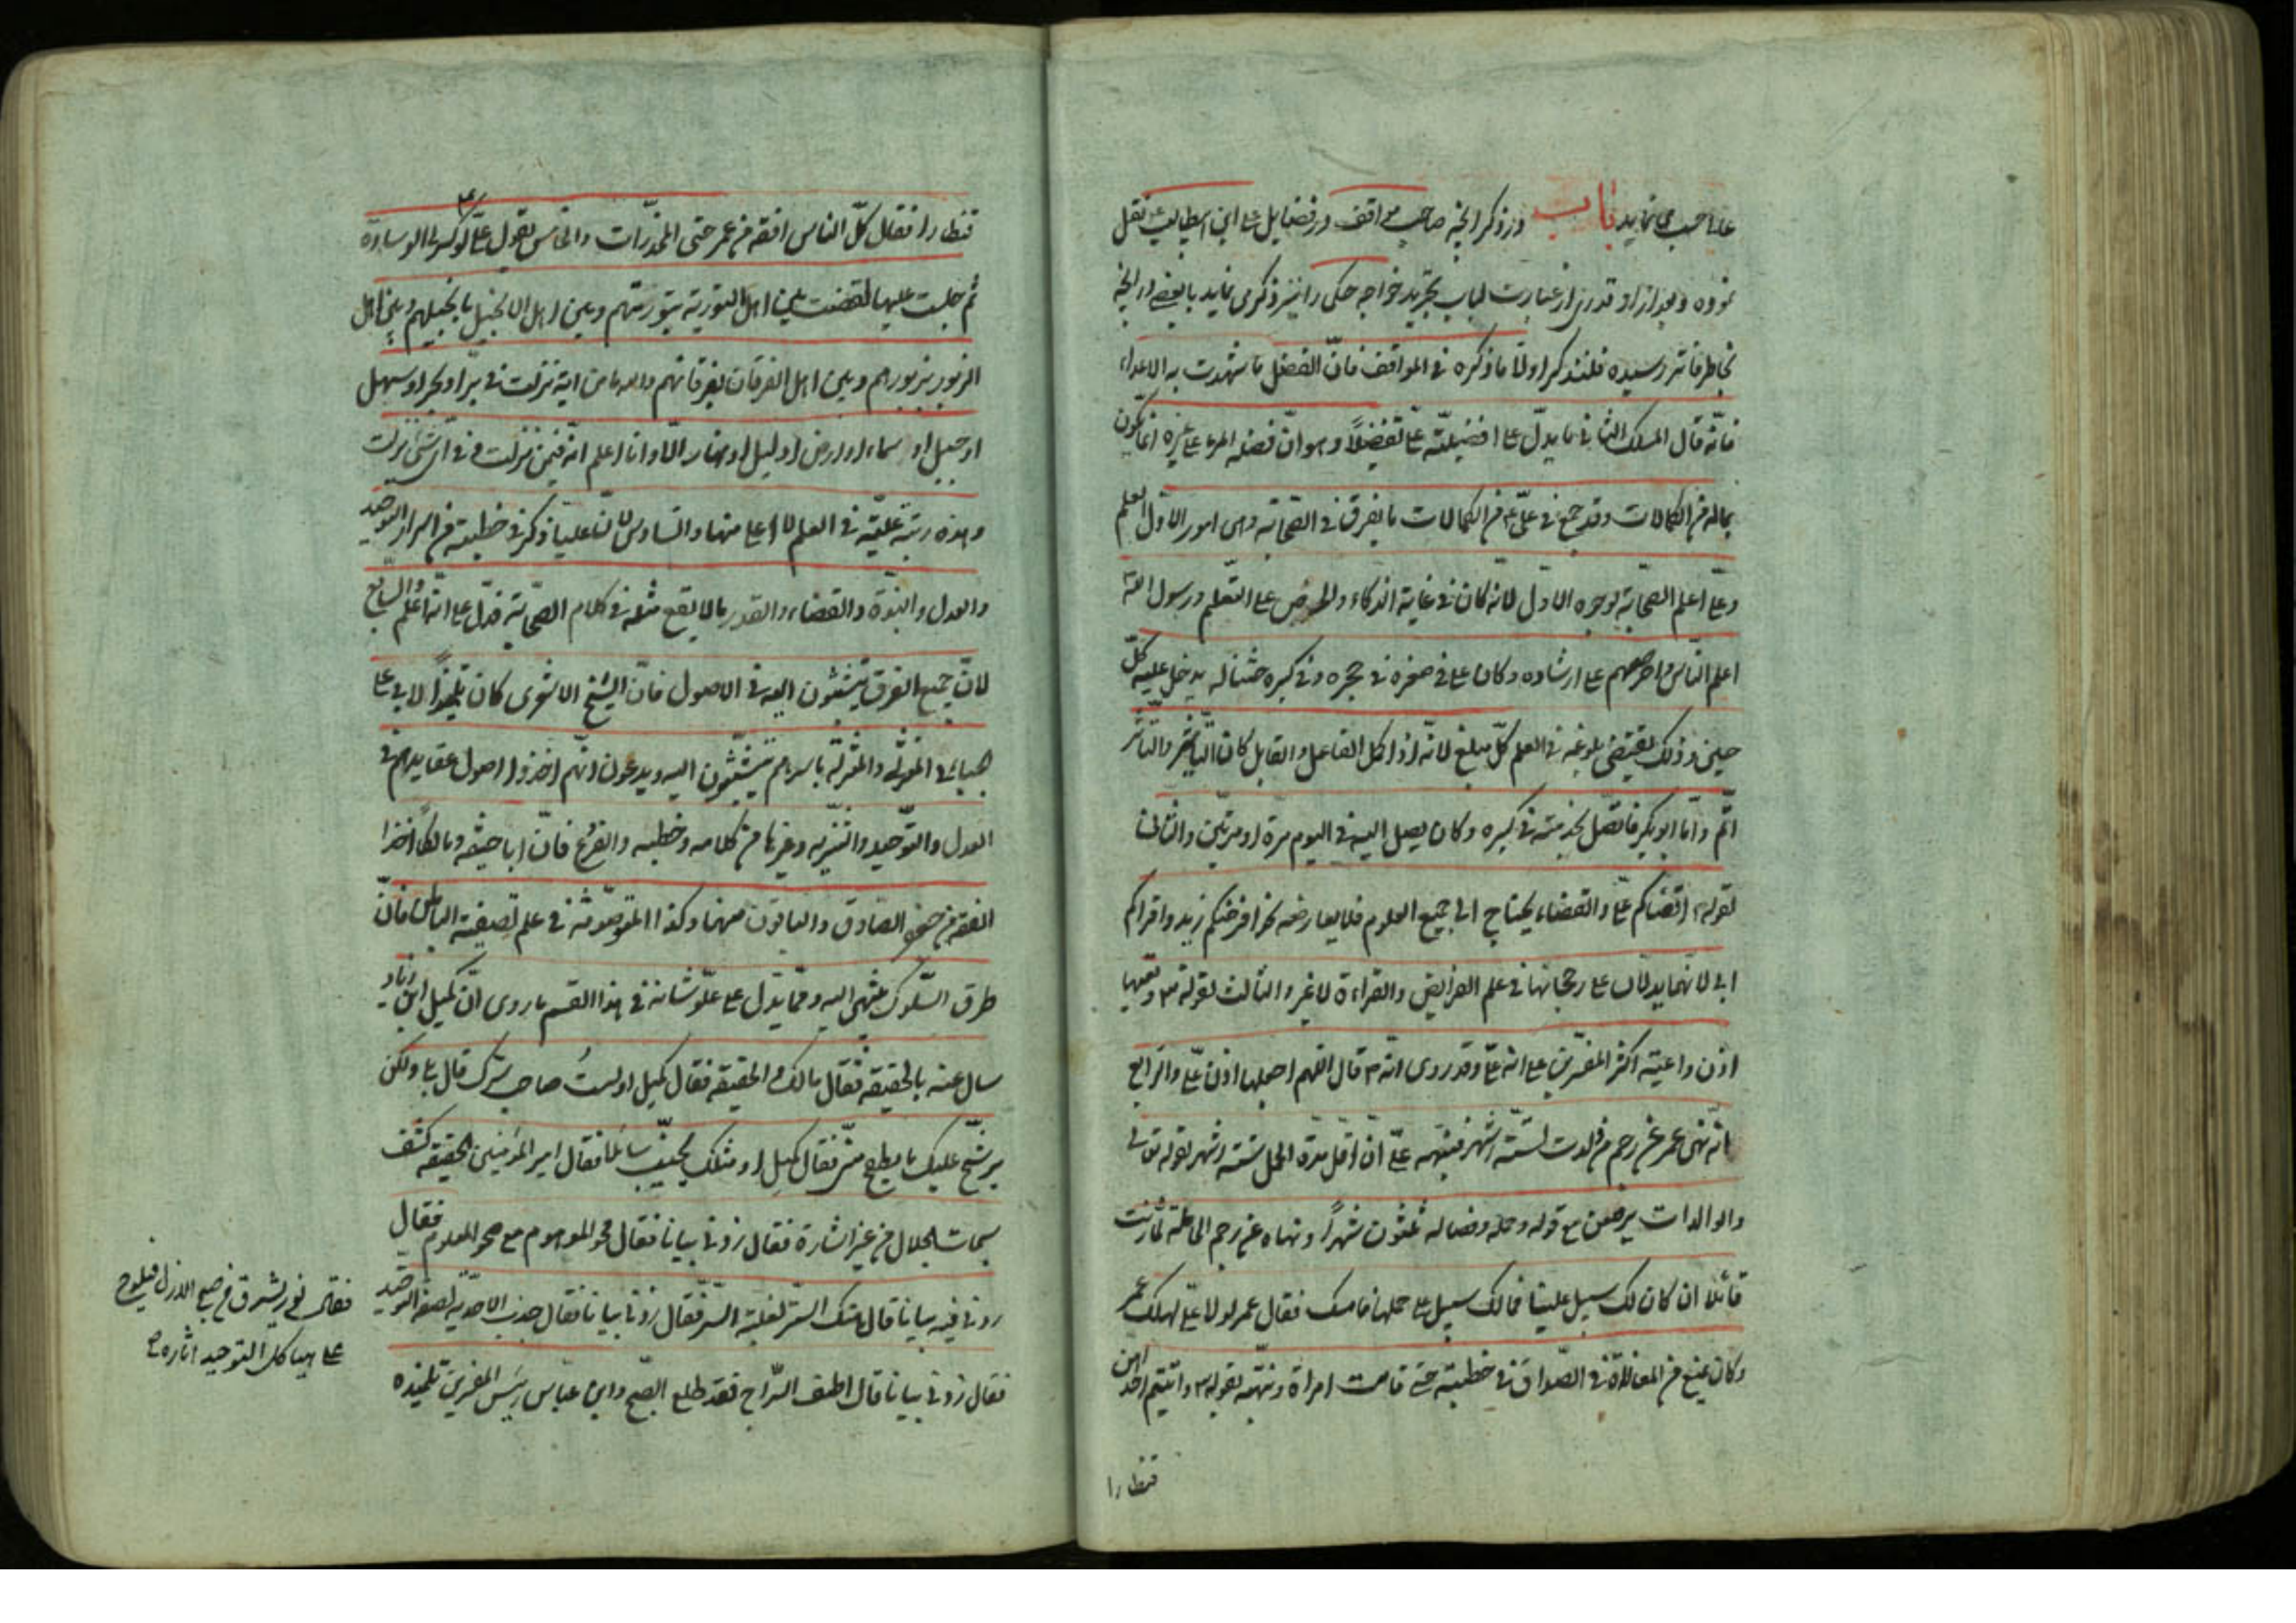 علیا حب می نماید باب در ذکر انچه صاحب مواقف در فضایل علی ابن ابیطالب ع نقل
نموده و بعد از ان قدری از عبارت لباب تجرید خواجه حکی را نیز ذکر می نماید با بعضی در انچه
بخاطر فاتر رسیده فلنذکر اولا ما ذکره فی المواقف فان الفضل ما شهدت به الاعداء
فانه قال المسلک الثانی ما یدل علی افضیلته علی تفضیلاً و هو ان فضله المرء علی غیره انما یکون
بماله من الکمالات وقد جمع فی علی ع من الکمالات ما تفرق فی الصحابة وهی امور الاول العلم
وعلی اعلم الصحابة لوجوه الاول لانه کان فی غایة الذکاء والحرص علی التعلم ورسول الله
اعلم الناس واحرصهم علی ارشاده وکان علی فی صغره فی حجره وفی کبره ختنا له یدخل علیه کل
حین وذلک یقتضی بلوغه فی العلم کل مبلغ لانه اذا کمل الفاعل والقابل کان التاثیر والتاثر
اتم واما ابو بکر فاتصل بخدمته فی کبره وکان یصل الیه فی الیوم مرة او مرتین والثانی
لقوله اقضاکم علی والقضاء یحتاج الی جمیع العلوم فلا یعارضه نحو افرضکم زید واقراکم
ابی لانهما یدلان علی رجحانهما فی علم الفرایض والقراءة لا غیر والثالث لقوله تع وتعیها
اذن واعیة اکثر المفسرین علی انه علی وقد روی انه قال اللهم اجعلها اذن علی والرابع
انه نهی عمر عن رجم من ولدت لستة اشهر فنبهه علی ان اقل مدة الحمل ستة اشهر لقوله تعالی
والوالدات یرضعن مع قوله وحمله وفصاله ثلثون شهراً ونهاه عن رجم الحاملة لما زنت
قائلا ان کان لک سبیل علیها فما لک سبیل علی حملها فامسک فقال عمر لولا علی لهلک عمر
وکان یمنع من المغالاة فی الصداق فی خطبته حتی قامت امراة ونبهته بقوله تع واتیتم احدیهن
قنطارا
قنطارا فقال کل الناس افقه من عمر حتی المخدرات والخامس یقول علی لو کسرت لی الوسادة
ثم جلست علیها لقضیت بین اهل التوریة بتوریتهم وبین اهل الانجیل بانجیلهم وبین اهل
الزبور بزبورهم وبین اهل الفرقان بفرقانهم والله ما من ایة نزلت فی بر او بحر او سهل
او جبل او سماء او ارض او لیل او نهار الا وانا اعلم انه فیمن نزلت وفی ای شئ نزلت
وهذه رتبة علیة فی العلم لا اعلی منها والسادس لان علیا ذکر فی خطبته من اسرار التوحید
والعدل والنبوة والقضاء والقدر ما لا یقع مثله فی کلام الصحابة فدل علی انه اعلم والسابع
لان جمیع الفرق یتشبثون الیه فی الاصول فان الشیخ الاشعری کان تلمیذاً لابی علی
جبائی المعتزلی والمعتزلة باسرهم یتشبثون الیه ویدعون انهم اخذوا اصول عقایدهم فی
العدل والتوحید والتنزیه وغیرها من کلامه وخطبه والفرع فان ابا حنیفه ومالکا اخذا
الفقه من جعفر الصادق والباقون منهما وکذا المتصوفة فی علم تصفیة الباطن فان
طرق السلوک ینتهی الیه ومما یدل علی علو شانه فی هذا القسم ما روی ان کمیل ابن زیاد
سال عنه بالحقیقه فقال مالک والحقیقه فقال کمیل اولست صاحب سرک قال بلی ولکن
یرشح علیک ما یطفح منی فقال کمیل اومثلک یخیب سائلا فقال امیر المؤمنین الحقیقه کشف
سبحات الجلال من غیر اشارة فقال زدنی بیانا فقال محو الموهوم مع صحو المعلوم فقال
زدنی فیه بیانا قال هتک الستر لغلبة السر فقال زدنی بیانا فقال جذب الاحدیة لصفة التوحید
فقال نور یشرق من صبح الازل فیلوح
علی هیاکل التوحید آثاره ص
فقال زدنی بیانا قال اطف السراج فقد طلع الصبح وابن عباس رئیس المفسرین تلمیذه